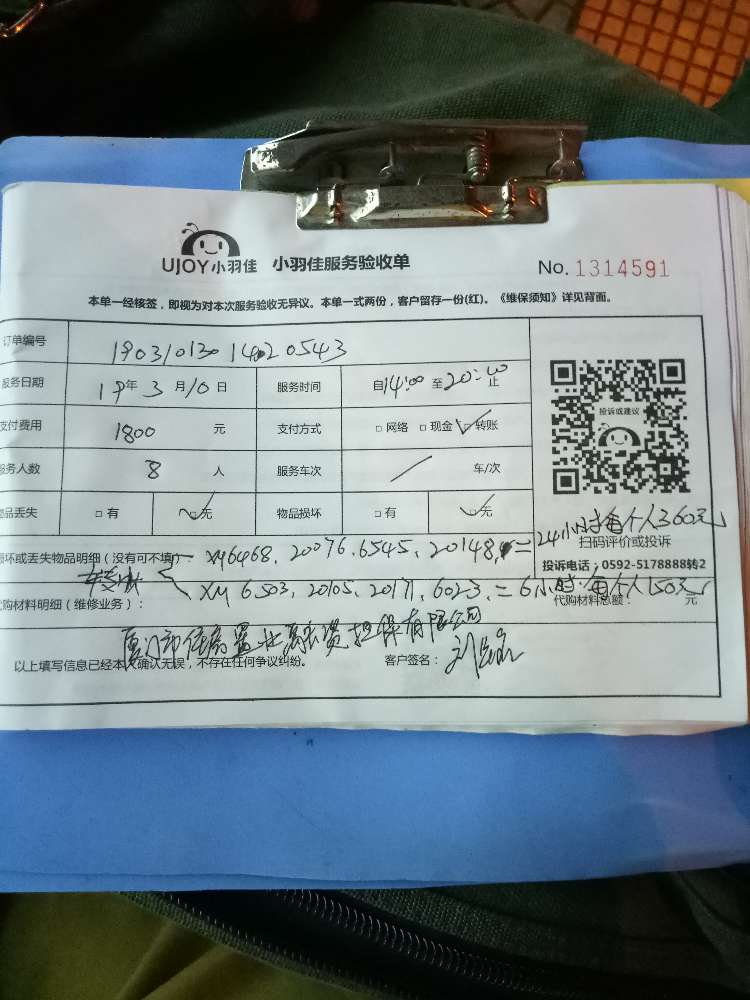 UJOY小羽佳 小羽佳服务验收单 No. 1314591
本单一经核签，即视为对本次服务验收无异议。本单一式两份，客户留存一份(红)。《维保须知》详见背面。
订单编号 19031013014020543
服务日期 19年3月10日 服务时间 自14:00至20:00止
支付费用 1800 元 支付方式 □网络 □现金 ☑转账
投诉或建议
服务人数 8 人 服务车次 / 车/次
物品丢失 □有 ☑无 物品损坏 □有 ☑无
扫码评价或投诉
投诉电话：0592-5178888转2
损坏或丢失物品明细（没有可不填）： XM6468、20076、6545、20148、=24小时每个人360元
XM6503、20105、20171、6023、=6小时·每个人150元
代购材料明细（维修业务）： 代购材料总额： 元
厦门市住房置业融资担保有限公司
以上填写信息已经本人确认无误，不存在任何争议纠纷。 客户签名： 刘